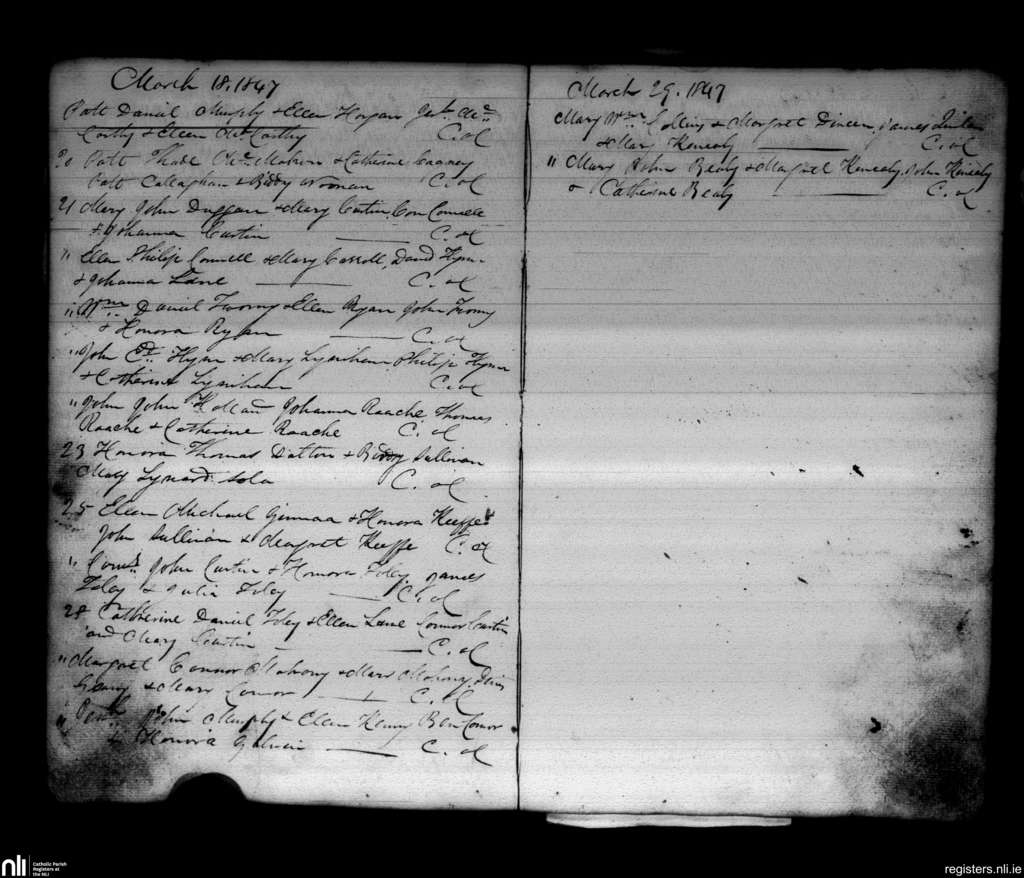 March 18, 1847
Patt Daniel Murphy & Ellen Horgan
Carthy & Ellen McCarthy C. of
20 Patt Thade McMahon & Catherine
Patt Callaghan & Biddy C. of
21 Mary John Duggan & Mary Curtin, Con Connell
& Johanna Curtin C. of
" Ellen Philip Connell & Mary Carroll, David
& Johanna Lane C. of
" Wm Daniel Twomy & Ellen Ryan John Twomy
& Honora Ryan C. of
" John Ed. & Mary Lynihan Philip
& Catherine Lynihan C. of
" John John Johanna Roache Thomas
Roache & Catherine Roache C. of
23 Honora Thomas Dalton & Biddy Sullivan
Mary sola C. of
25 Ellen Michael & Honora Keeffe
John Sullivan & Margret Keeffe C. of
" John Curtin & Honora Foley James
Foley & Julia Foley C. of
28 Catherine Daniel Foley & Ellen Lane Connor Curtin
and Mary Curtin C. of
" Margret Connor Mahony & Mary Mahony,
& Mary Connor C. of
" John Murphy & Ellen Connor
& Honora Galvin C. of
March 29, 1847
Mary Wm Collins & Margret Dineen, James
& Mary Keneally C. of
" Mary John Bealy & Margret Kenealy, John Kenealy
& Catherine Bealy C. of
nli
Catholic Parish
Registers at
the NLI
registers.nli.ie